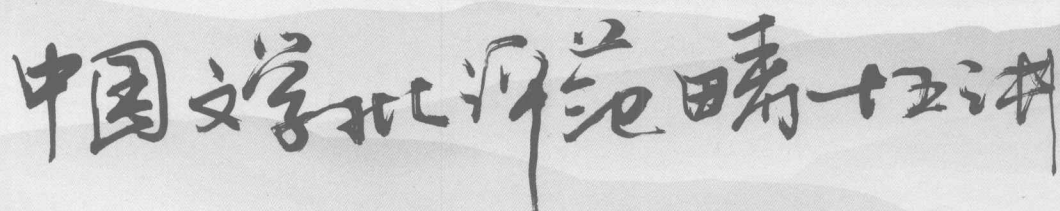 中国文学批评范畴十五讲